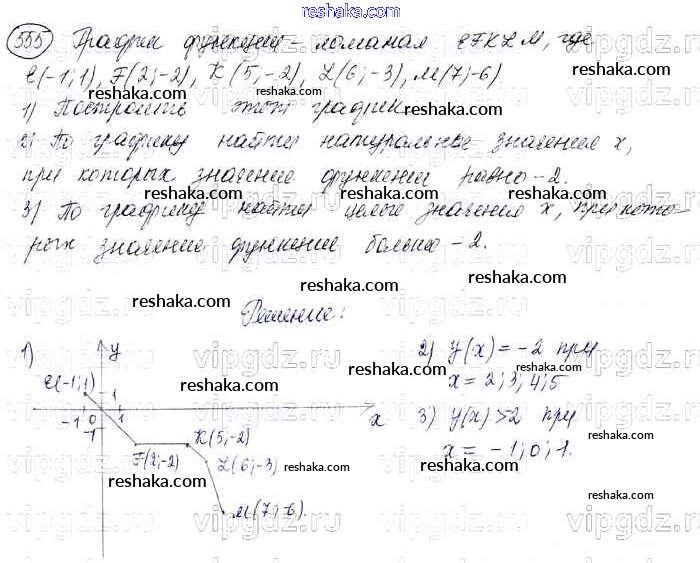 reshaka.com
555 График функции - ломаная EFKLM, где
E(-1;1), F(2;-2), K(5;-2), L(6;-3), M(7;-6)
reshaka.com
1) Построить этот график
reshaka.com
2) По графику найти натуральные значения x,
reshaka.com
при которых значение функции равно -2.
reshaka.com
3) По графику найти целые значения x, при кото-
reshaka.com
рых значение функции больше -2.
reshaka.com
Решение:
reshaka.com
vipgdz.ru
1)
y
E(-1;1)
1
-1 0 1 x
-1
K(5;-2)
F(2;-2)
L(6;-3)
M(7;-6).
2) y(x) = -2 при
x = 2; 3; 4; 5
3) y(x) > 2 при
x = -1; 0; 1.
reshaka.com